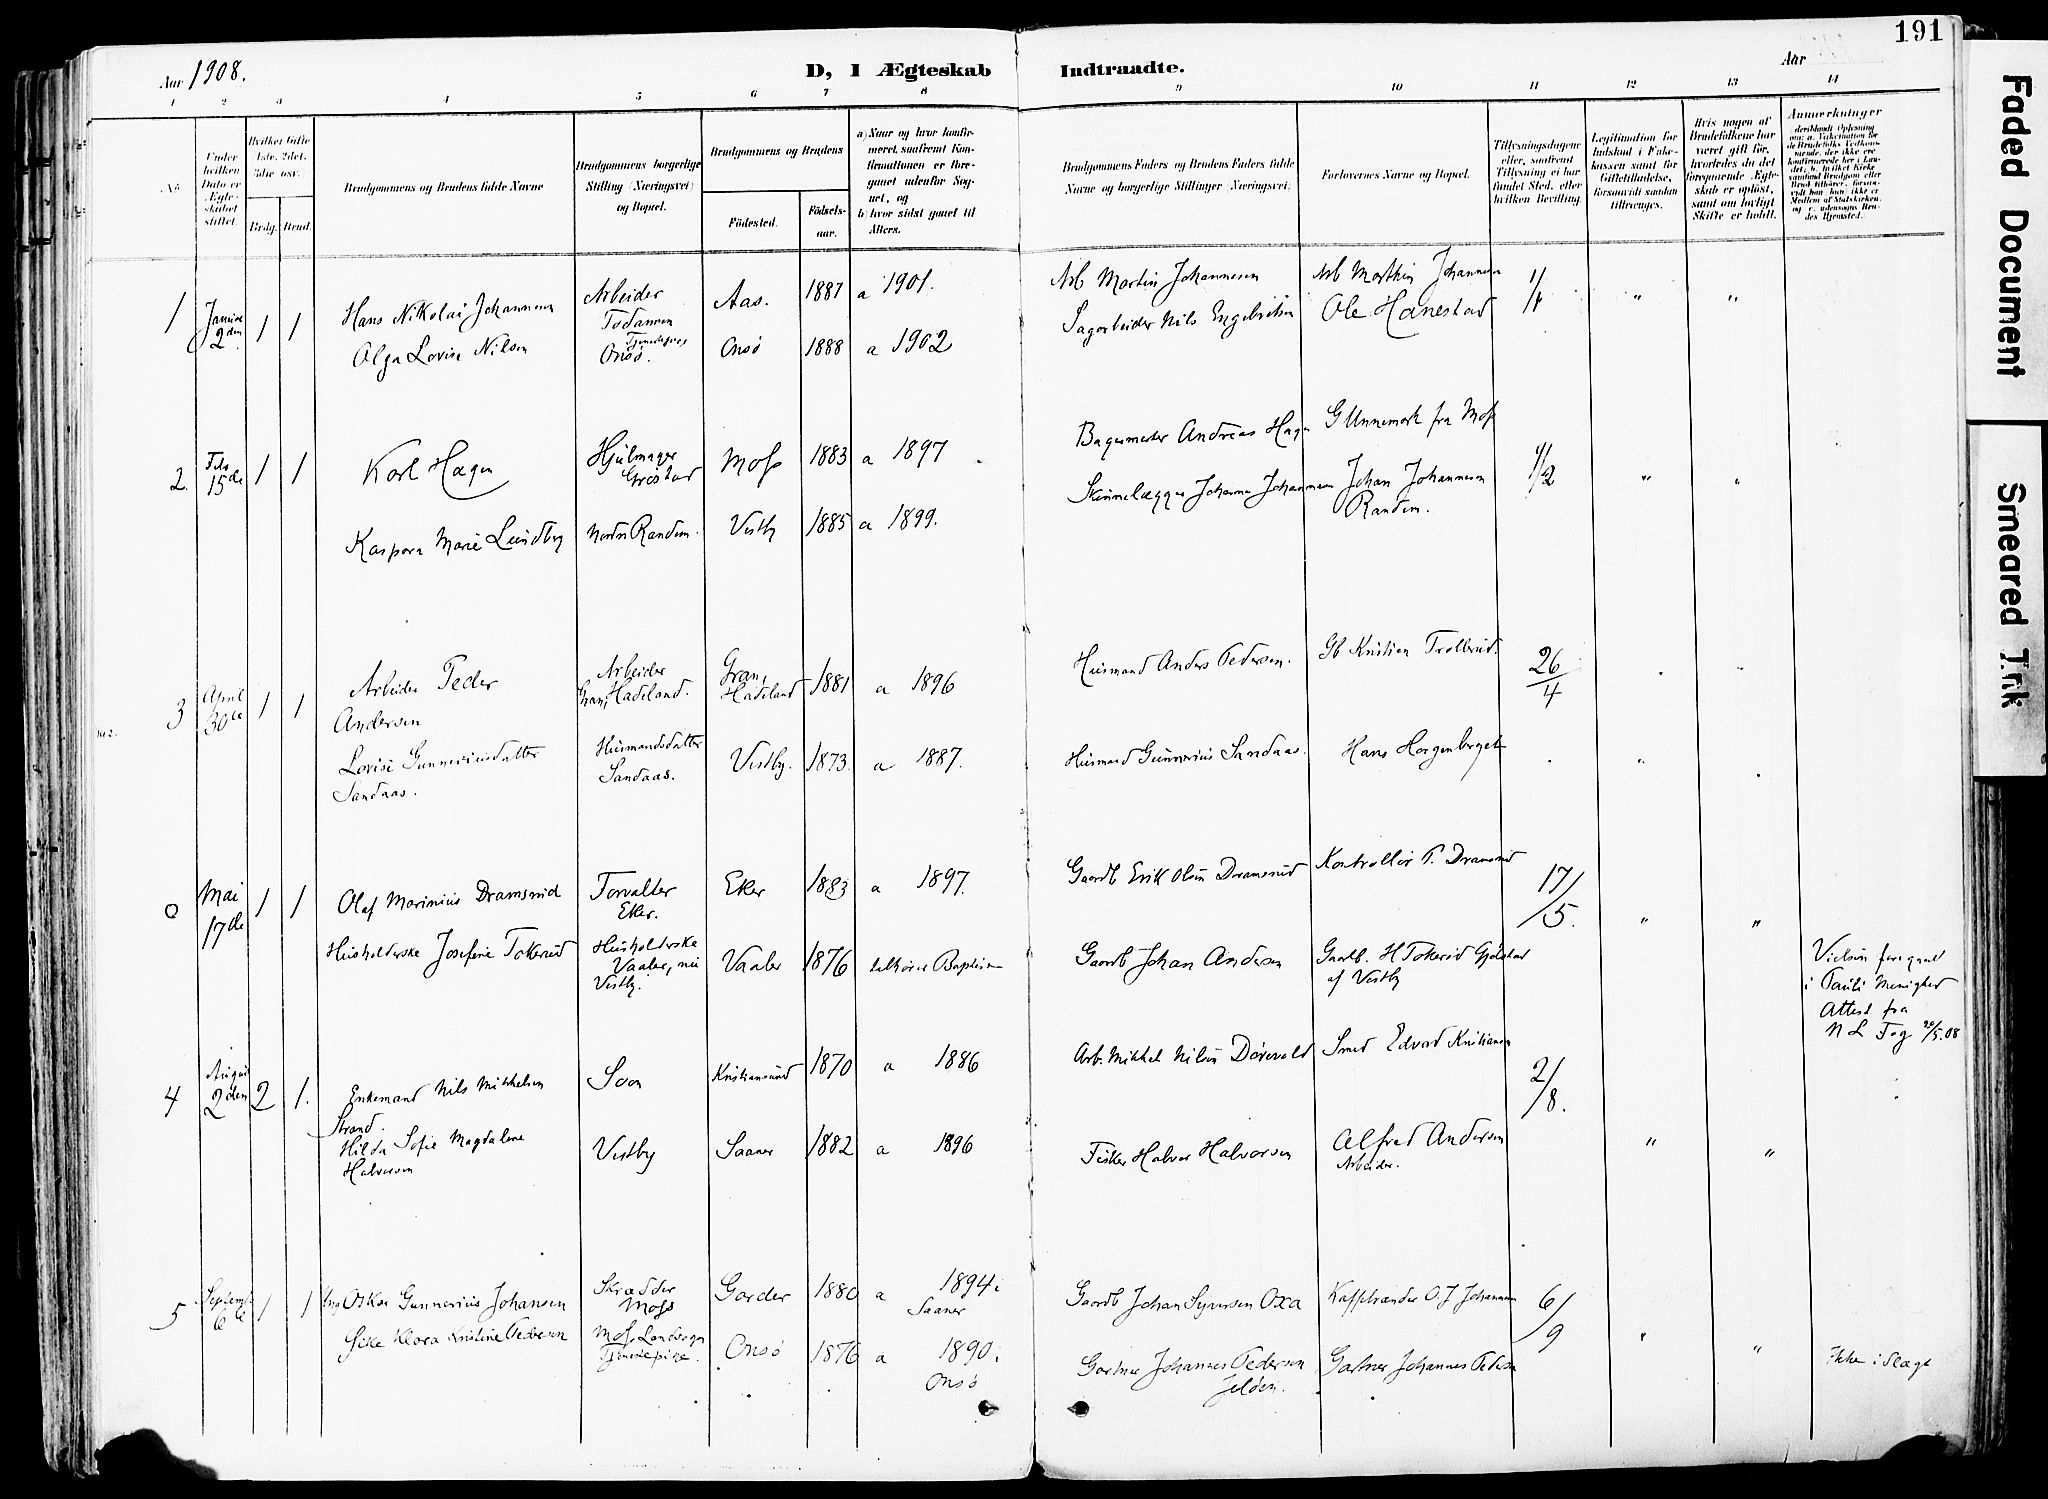 191
Aar 1908.
D, I Ægteskab Indtraadte.
Aar
1 2 3 4 5 6 7 8 9 10 11 12 13 14
No
Under hvilken Dato er Ægteskabet stiftet.
Hvilket Gifte 1ste, 2det, 3die osv.
Brdg. Brud.
Brudgommens og Brudens fulde Navne
Brudgommens borgerlige Stilling (Næringsvei) og Bopæl.
Brudgommens og Brudens
Fødested.
Fødselsaar.
a) Naar og hvor konfirmeret, saafremt Konfirmationen er foregaaet udenfor Sognet, og
b) hvor sidst gaaet til Alters.
Brudgommens Faders og Brudens Faders fulde Navne og borgerlige Stillinger (Næringsvei)
Forlovernes Navne og Bopæl.
Tillysningsdagene eller, saafremt Tillysning ei har fundet Sted, efter hvilken Bevilling.
Legitimation for Indskud i Enkekassen samt for Giftetilladelse, forsaavidt saadan tiltrænges.
Hvis nogen af Brudefolkene har været gift før, hvorledes da det foregaaende Ægteskab er opløst, samt om lovligt Skifte er holdt.
Anmærkninger
1 2den 1 1 Hans Nikolai Johannesen Arbeider Aas. 1887 a 1901. Arb Martin Johannesen Arb Marthin Johannesen " "
Olga Lovise Nilsen Onsø. Onsø 1888 a 1902 Sagarbeider Nils Engebretsen Ole Hanestad
2. Feb 15de 1 1 Karl Hagen Hjulmager Moss 1883 a 1897 Bagermester Andreas Hagen G Unnemark fra Moss " "
Kaspara Marie Lundby Nordre Randem. Vestby 1885 a 1899. Johan Johannesen Randem.
3 April 30te 1 1 Arbeider Peder Andersen Arbeider Gran, Hadeland. Gran, Hadeland 1881 a 1896 Husmand Anders Pedersen. Gb Kristian Trolberud. 26/4
Lovise Gunneriusdatter Sandaas. Husmandsdatter Sandaas. Vestby. 1873. a 1887. Husmand Gunnerius Sandaas. Hans Horgenberget
0 Mai 17de 1 1 Olaf Marinius Dramsrud Forvalter Eker. Eker 1883 a 1897. Gaardb Erik Olsen Dramsrud Kontrollør P. Dramsrud 17/5. " "
Husholderske Josefine Tokerud Husholderske Vaaler, nu Vestby. Vaaler 1876 Gaardb Johan Andersen Gaardb. H Tokerud Gjølstad af Vestby
Vielsen foregaaet i Pauli Menighed Attest fra
4 August 2den 2 1. Enkemand Nils Mikkelsen Strand. Soon Kristiansund 1870 a 1886 Arb. Mikkel Nilsen Smed Edvard Kristiansen 2/8.
Hilda Sofie Magdalene Halvorsen Vestby Saaner 1882 a 1896 Fisker Halvor Halvorsen Alfred Andersen Arbeider. " "
5 September 6te 1 1 Oskar Gunnerius Johansen Skrædder Moss Garder 1880 a 1894 i Saaner Gaardb Johan Syversen Oxa O. J Johannesen 6/9 " "
Klara Kristine Pedersen Moss Landsogn Tjenestepike. Onsø 1876 a 1890 i Onsø Gartner Johannes Pedersen Jeløen. Gartner Johannes Pedersen Ikke i Slægt
Faded Document
Smeared Ink